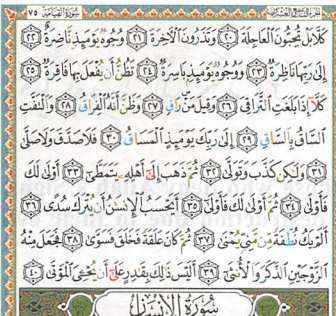 سُورَةُ القِيَامَةِ ٧٥
كَلَّا بَلْ تُحِبُّونَ ٱلْعَاجِلَةَ ٢٠ وَتَذَرُونَ ٱلْـَٔاخِرَةَ ٢١ وُجُوهٌ يَوْمَئِذٍ نَّاضِرَةٌ ٢٢
إِلَىٰ رَبِّهَا نَاظِرَةٌ ٢٣ وَوُجُوهٌ يَوْمَئِذٍۭ بَاسِرَةٌ ٢٤ تَظُنُّ أَن يُفْعَلَ بِهَا فَاقِرَةٌ ٢٥
كَلَّآ إِذَا بَلَغَتِ ٱلتَّرَاقِىَ ٢٦ وَقِيلَ مَنْ رَاقٍ ٢٧ وَظَنَّ أَنَّهُ ٱلْفِرَاقُ ٢٨ وَٱلْتَفَّتِ
ٱلسَّاقُ بِٱلسَّاقِ ٢٩ إِلَىٰ رَبِّكَ يَوْمَئِذٍ ٱلْمَسَاقُ ٣٠ فَلَا صَدَّقَ وَلَا صَلَّىٰ
٣١ وَلَٰكِن كَذَّبَ وَتَوَلَّىٰ ٣٢ ثُمَّ ذَهَبَ إِلَىٰٓ أَهْلِهِۦ يَتَمَطَّىٰٓ ٣٣ أَوْلَىٰ لَكَ
فَأَوْلَىٰ ٣٤ ثُمَّ أَوْلَىٰ لَكَ فَأَوْلَىٰٓ ٣٥ أَيَحْسَبُ ٱلْإِنسَٰنُ أَن يُتْرَكَ سُدًى ٣٦
أَلَمْ يَكُ نُطْفَةً مِّن مَّنِىٍّ يُمْنَىٰ ٣٧ ثُمَّ كَانَ عَلَقَةً فَخَلَقَ فَسَوَّىٰ ٣٨ فَجَعَلَ مِنْهُ
ٱلزَّوْجَيْنِ ٱلذَّكَرَ وَٱلْأُنثَىٰٓ ٣٩ أَلَيْسَ ذَٰلِكَ بِقَٰدِرٍ عَلَىٰٓ أَن يُحْۦِىَ ٱلْمَوْتَىٰ ٤٠
سُورَةُ الإِنْسَانِ